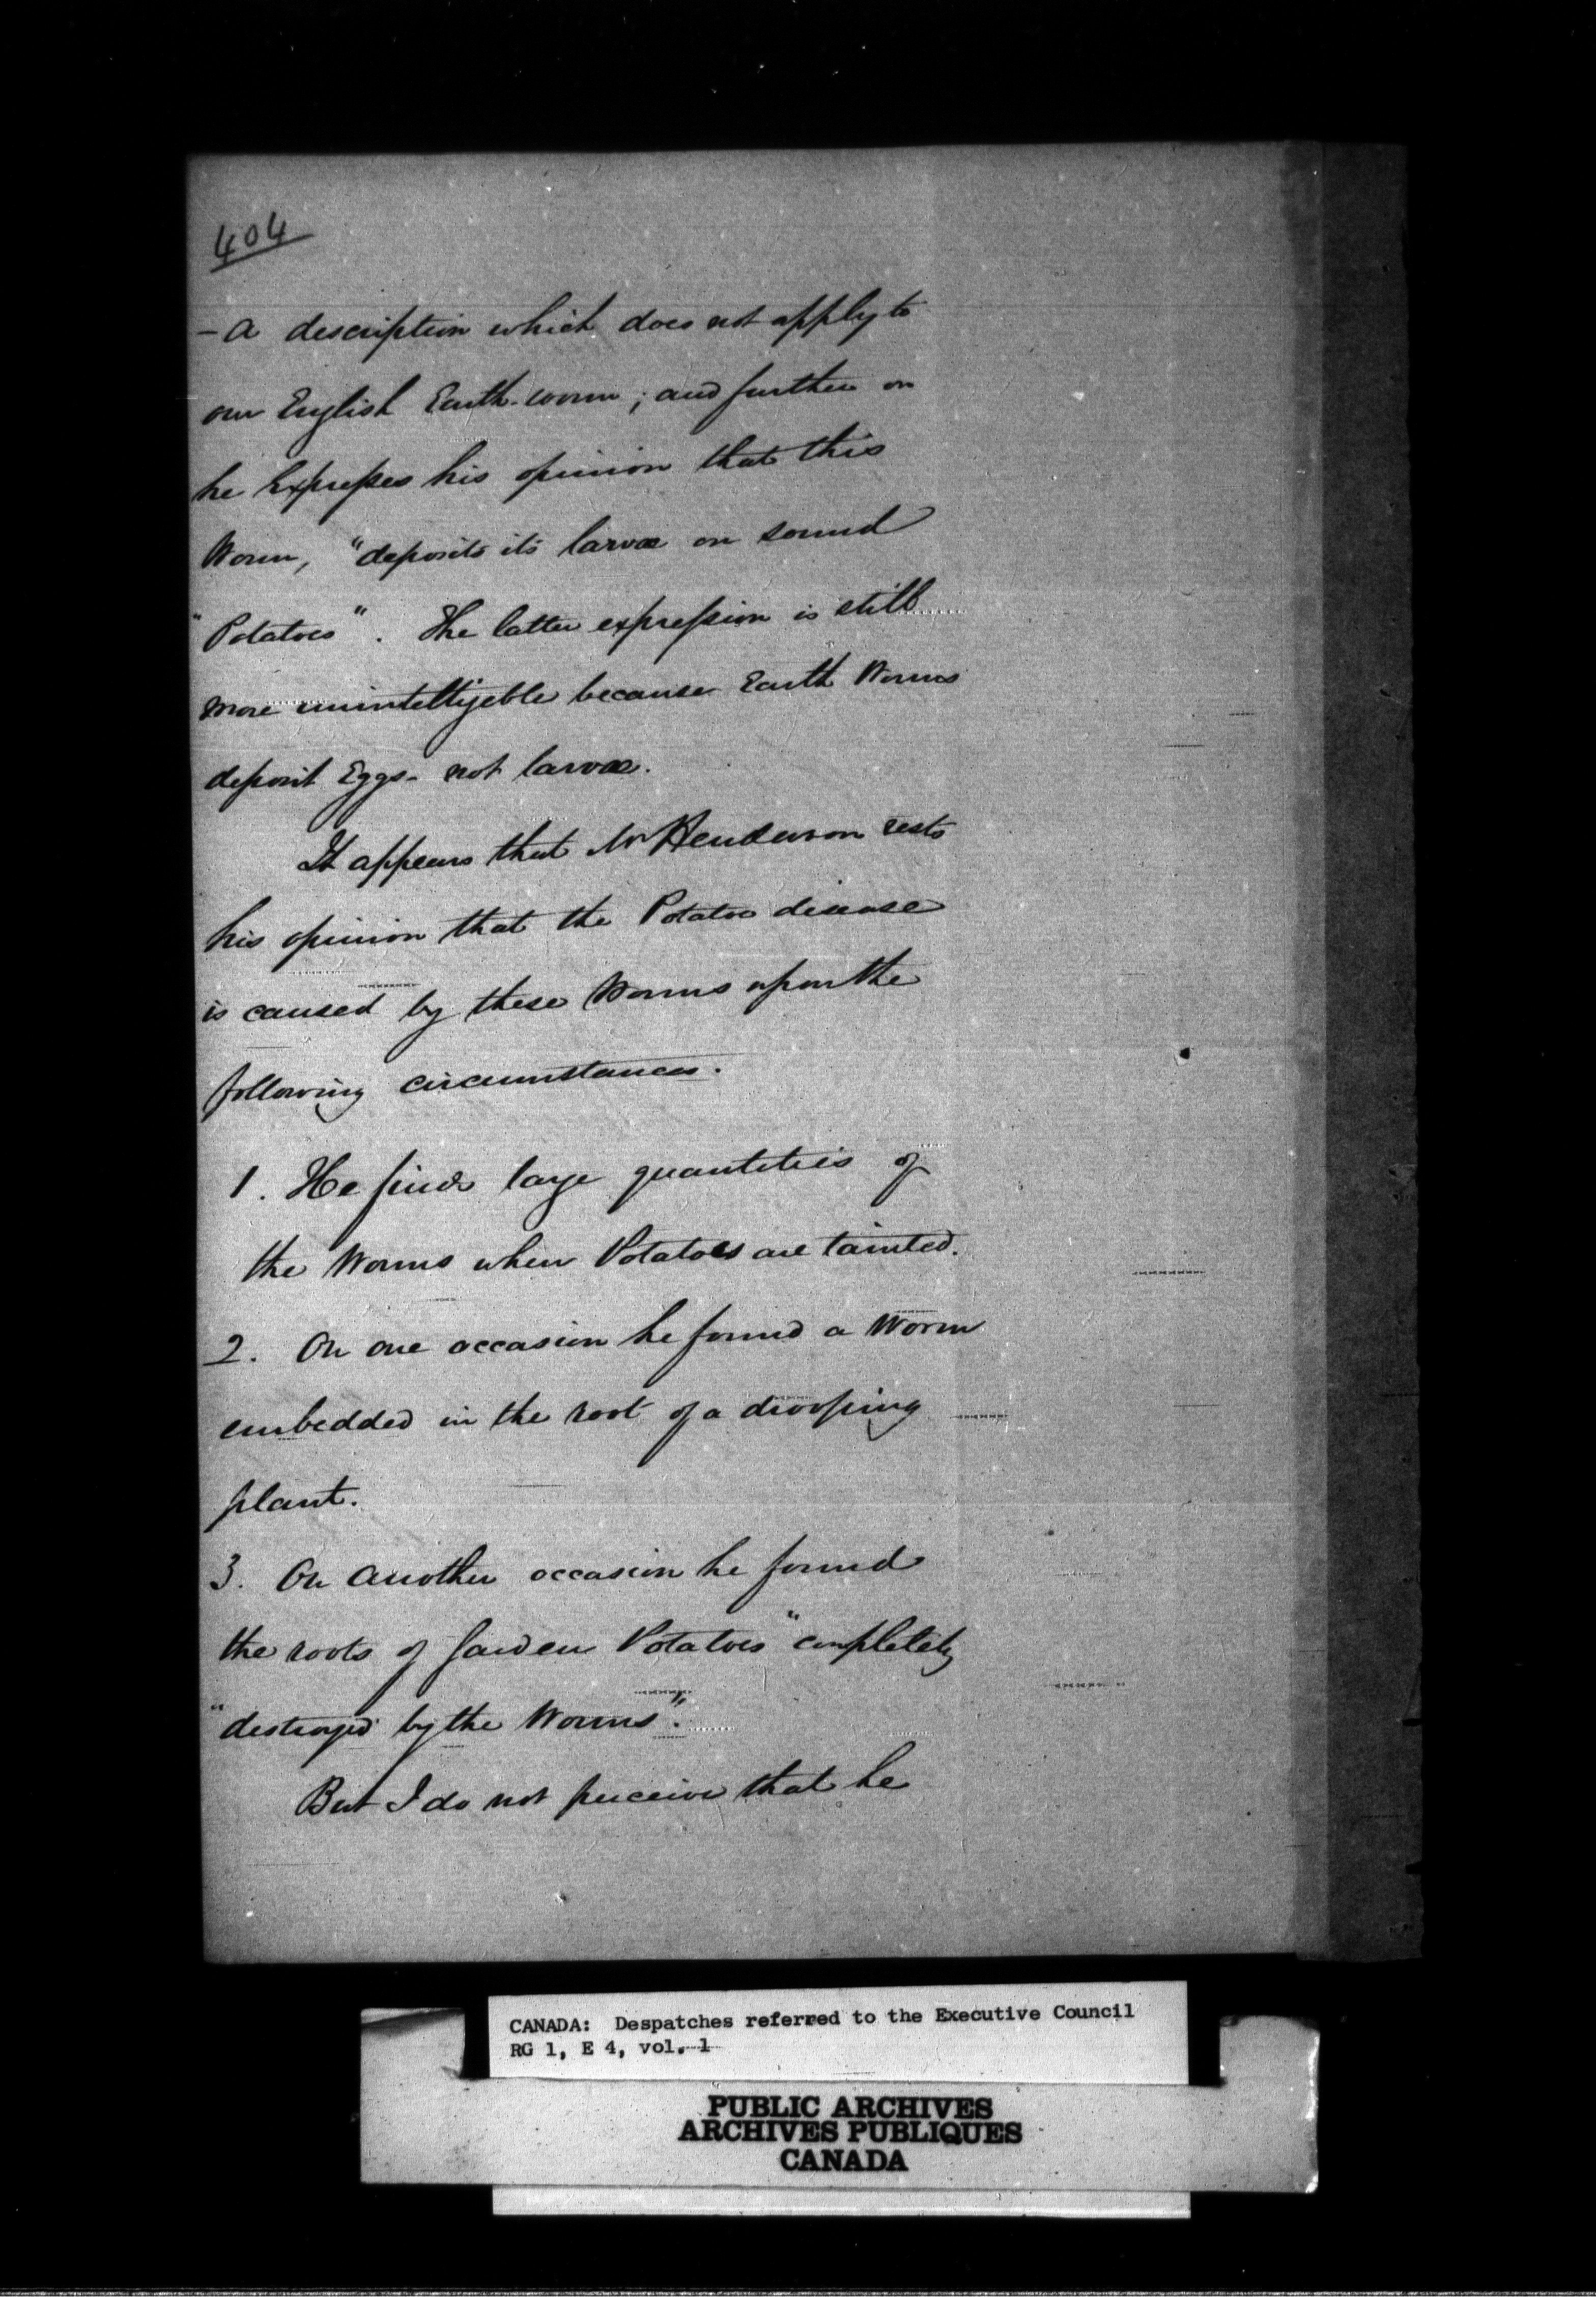 404
- a description which does not apply to
our English Earth-worm; and further on
he Expresses his opinion that this
Worm, "deposits its larvæ on sound
"Potatoes". The latter expression is still
more unintelligeble because Earth Worms
deposit Eggs - not larvæ.
It appears that Mr Henderson rests
his opinion that the Potatoe disease
is caused by these Worms upon the
following circumstances.
1. He finds large quantities of
the Worms when Potatoes are tainted.
2. On one occasion he found a Worm
embedded in the root of a drooping
plant.
3. On another occasion he found
the roots of Garden Potatoes "completely
"destroyed by the Worms".
But I do not perceive that he
CANADA: Despatches referred to the Executive Council
RG 1, E 4, vol. 1
PUBLIC ARCHIVES
ARCHIVES PUBLIQUES
CANADA